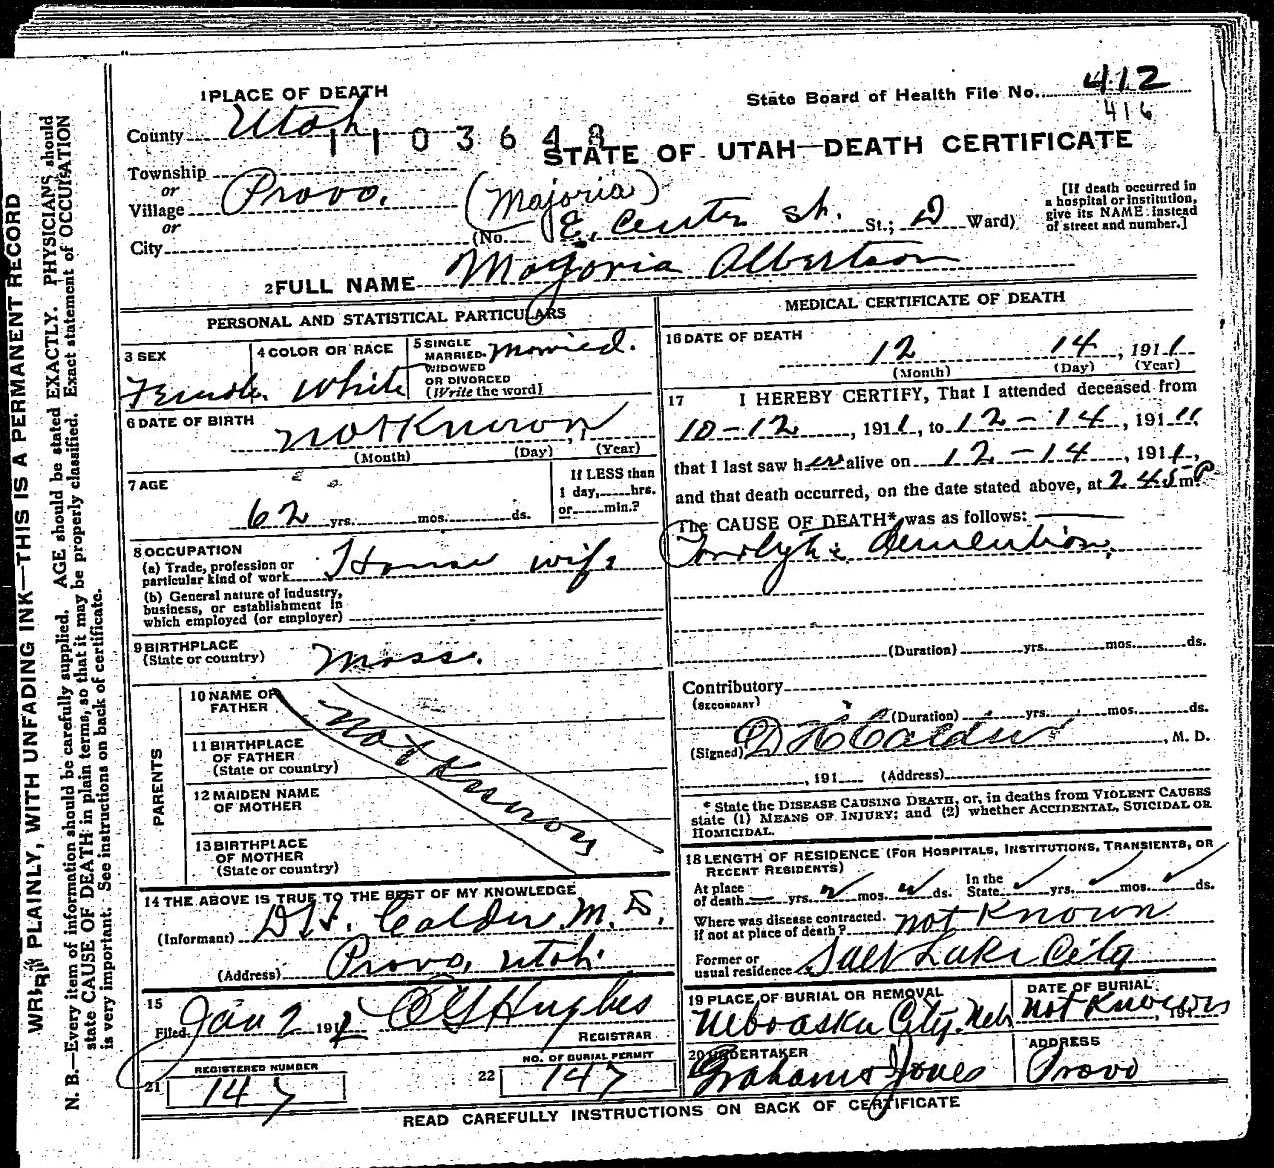 1 PLACE OF DEATH
State Board of Health File No. 412
416
County Utah
1 1 0 3 6 4 8
STATE OF UTAH—DEATH CERTIFICATE
Township
or
Village Provo.
or
City
(Majoria)
(No. E. Center St. St.; 2 Ward)
[If death occurred in
a hospital or institution,
give its NAME instead
of street and number.]
2 FULL NAME Marjoria Albertson
PERSONAL AND STATISTICAL PARTICULARS
3 SEX
Female
4 COLOR OR RACE
White
5 SINGLE
MARRIED.
WIDOWED
OR DIVORCED
(Write the word)
Married.
6 DATE OF BIRTH
Not Known
(Month) (Day) (Year)
7 AGE
62 yrs. mos. ds.
If LESS than
1 day, hrs.
or min.?
8 OCCUPATION
(a) Trade, profession or
particular kind of work House wife
(b) General nature of industry,
business, or establishment in
which employed (or employer)
9 BIRTHPLACE
(State or country)
Mass.
PARENTS
10 NAME OF
FATHER
11 BIRTHPLACE
OF FATHER
(State or country)
12 MAIDEN NAME
OF MOTHER
13 BIRTHPLACE
OF MOTHER
(State or country)
Not Known
14 THE ABOVE IS TRUE TO THE BEST OF MY KNOWLEDGE
(Informant) D.H. Calder M.D.
(Address) Provo, Utah.
15
Filed Jan 2 1912 O G Hughes
REGISTRAR
21 REGISTERED NUMBER
147
22 NO. OF BURIAL PERMIT
147
MEDICAL CERTIFICATE OF DEATH
16 DATE OF DEATH
12 14, 1911
(Month) (Day) (Year)
17 I HEREBY CERTIFY, That I attended deceased from
10-12, 1911, to 12-14, 1911,
that I last saw her alive on 12-14, 1911,
and that death occurred, on the date stated above, at 2 45 P m.
The CAUSE OF DEATH* was as follows:
Dementia
(Duration) yrs. mos. ds.
Contributory
(SECONDARY)
(Duration) yrs. mos. ds.
(Signed) D H Calder, M. D.
, 191 (Address)
* State the DISEASE CAUSING DEATH, or, in deaths from VIOLENT CAUSES
state (1) MEANS OF INJURY; and (2) whether ACCIDENTAL, SUICIDAL OR
HOMICIDAL.
18 LENGTH OF RESIDENCE (FOR HOSPITALS, INSTITUTIONS, TRANSIENTS, OR
RECENT RESIDENTS)
At place
of death yrs. 2 mos. ds.
In the
State yrs. mos. ds.
Where was disease contracted.
if not at place of death? Not Known
Former or
usual residence Salt Lake City
19 PLACE OF BURIAL OR REMOVAL
Nebraska City. Neb
DATE OF BURIAL
Not Known, 191
20 UNDERTAKER
Graham & Jones
ADDRESS
Provo
READ CAREFULLY INSTRUCTIONS ON BACK OF CERTIFICATE
WRITE PLAINLY, WITH UNFADING INK—THIS IS A PERMANENT RECORD
N. B.—Every item of information should be carefully supplied. AGE should be stated EXACTLY. PHYSICIANS should
state CAUSE OF DEATH in plain terms, so that it may be properly classified. Exact statement of OCCUPATION
is very important. See instructions on back of certificate.